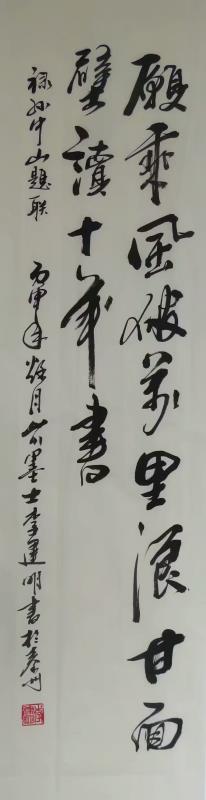 願乘風破萬里浪甘面
壁讀十年書
禄孙中山题联
丙申年月墨士李建明書於州